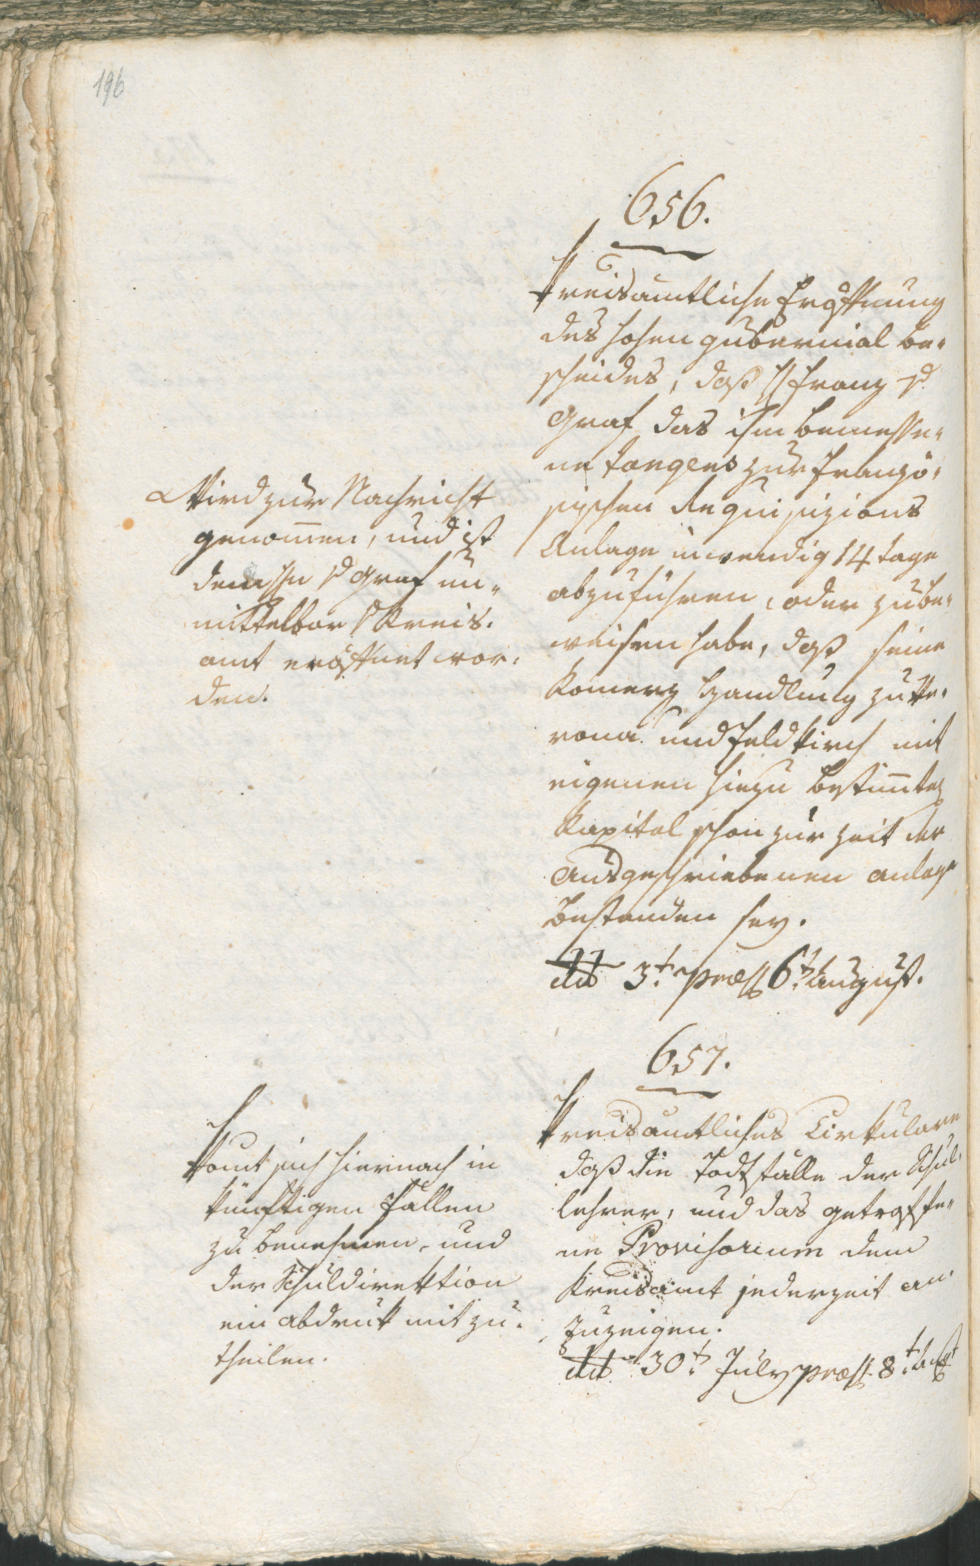 196
656.
Kreisamtliche Eröffnung
des hohen gubernial Be-
scheides, daß H Franz v
Graf das ihm bemesse-
ne tangens zur Franzö-
sischen Requisizions
Anlage inwendig 14 tage
abzuführen, oder zu be-
weisen habe, daß seine
Komerz Handlung zu Ve-
rona und Feldkirch mit
eigenen hiezu bestim̅ten
Kapital schon zur zeit der
ausgeschriebenen anlage
bestanden sey.
dd 3t præs 6t August.
Wird zur Nachricht
genom̅en, und ist
dem Hn v Graf un-
mittelbar v Kreis-
amt eröffnet wor-
den.
657.
Kreisamtliches Cirkulare
daß die Todtfälle der Schul-
lehrer, und das getroffe-
ne Provisorium dem
Kreisamt jederzeit an-
zuzeigen.
dd 30t July præs 8t Augst
Komt sich hiernach in
künftigen fällen
zu benehmen, und
der Schuldirektion
ein abdruk mitzu-
theilen.